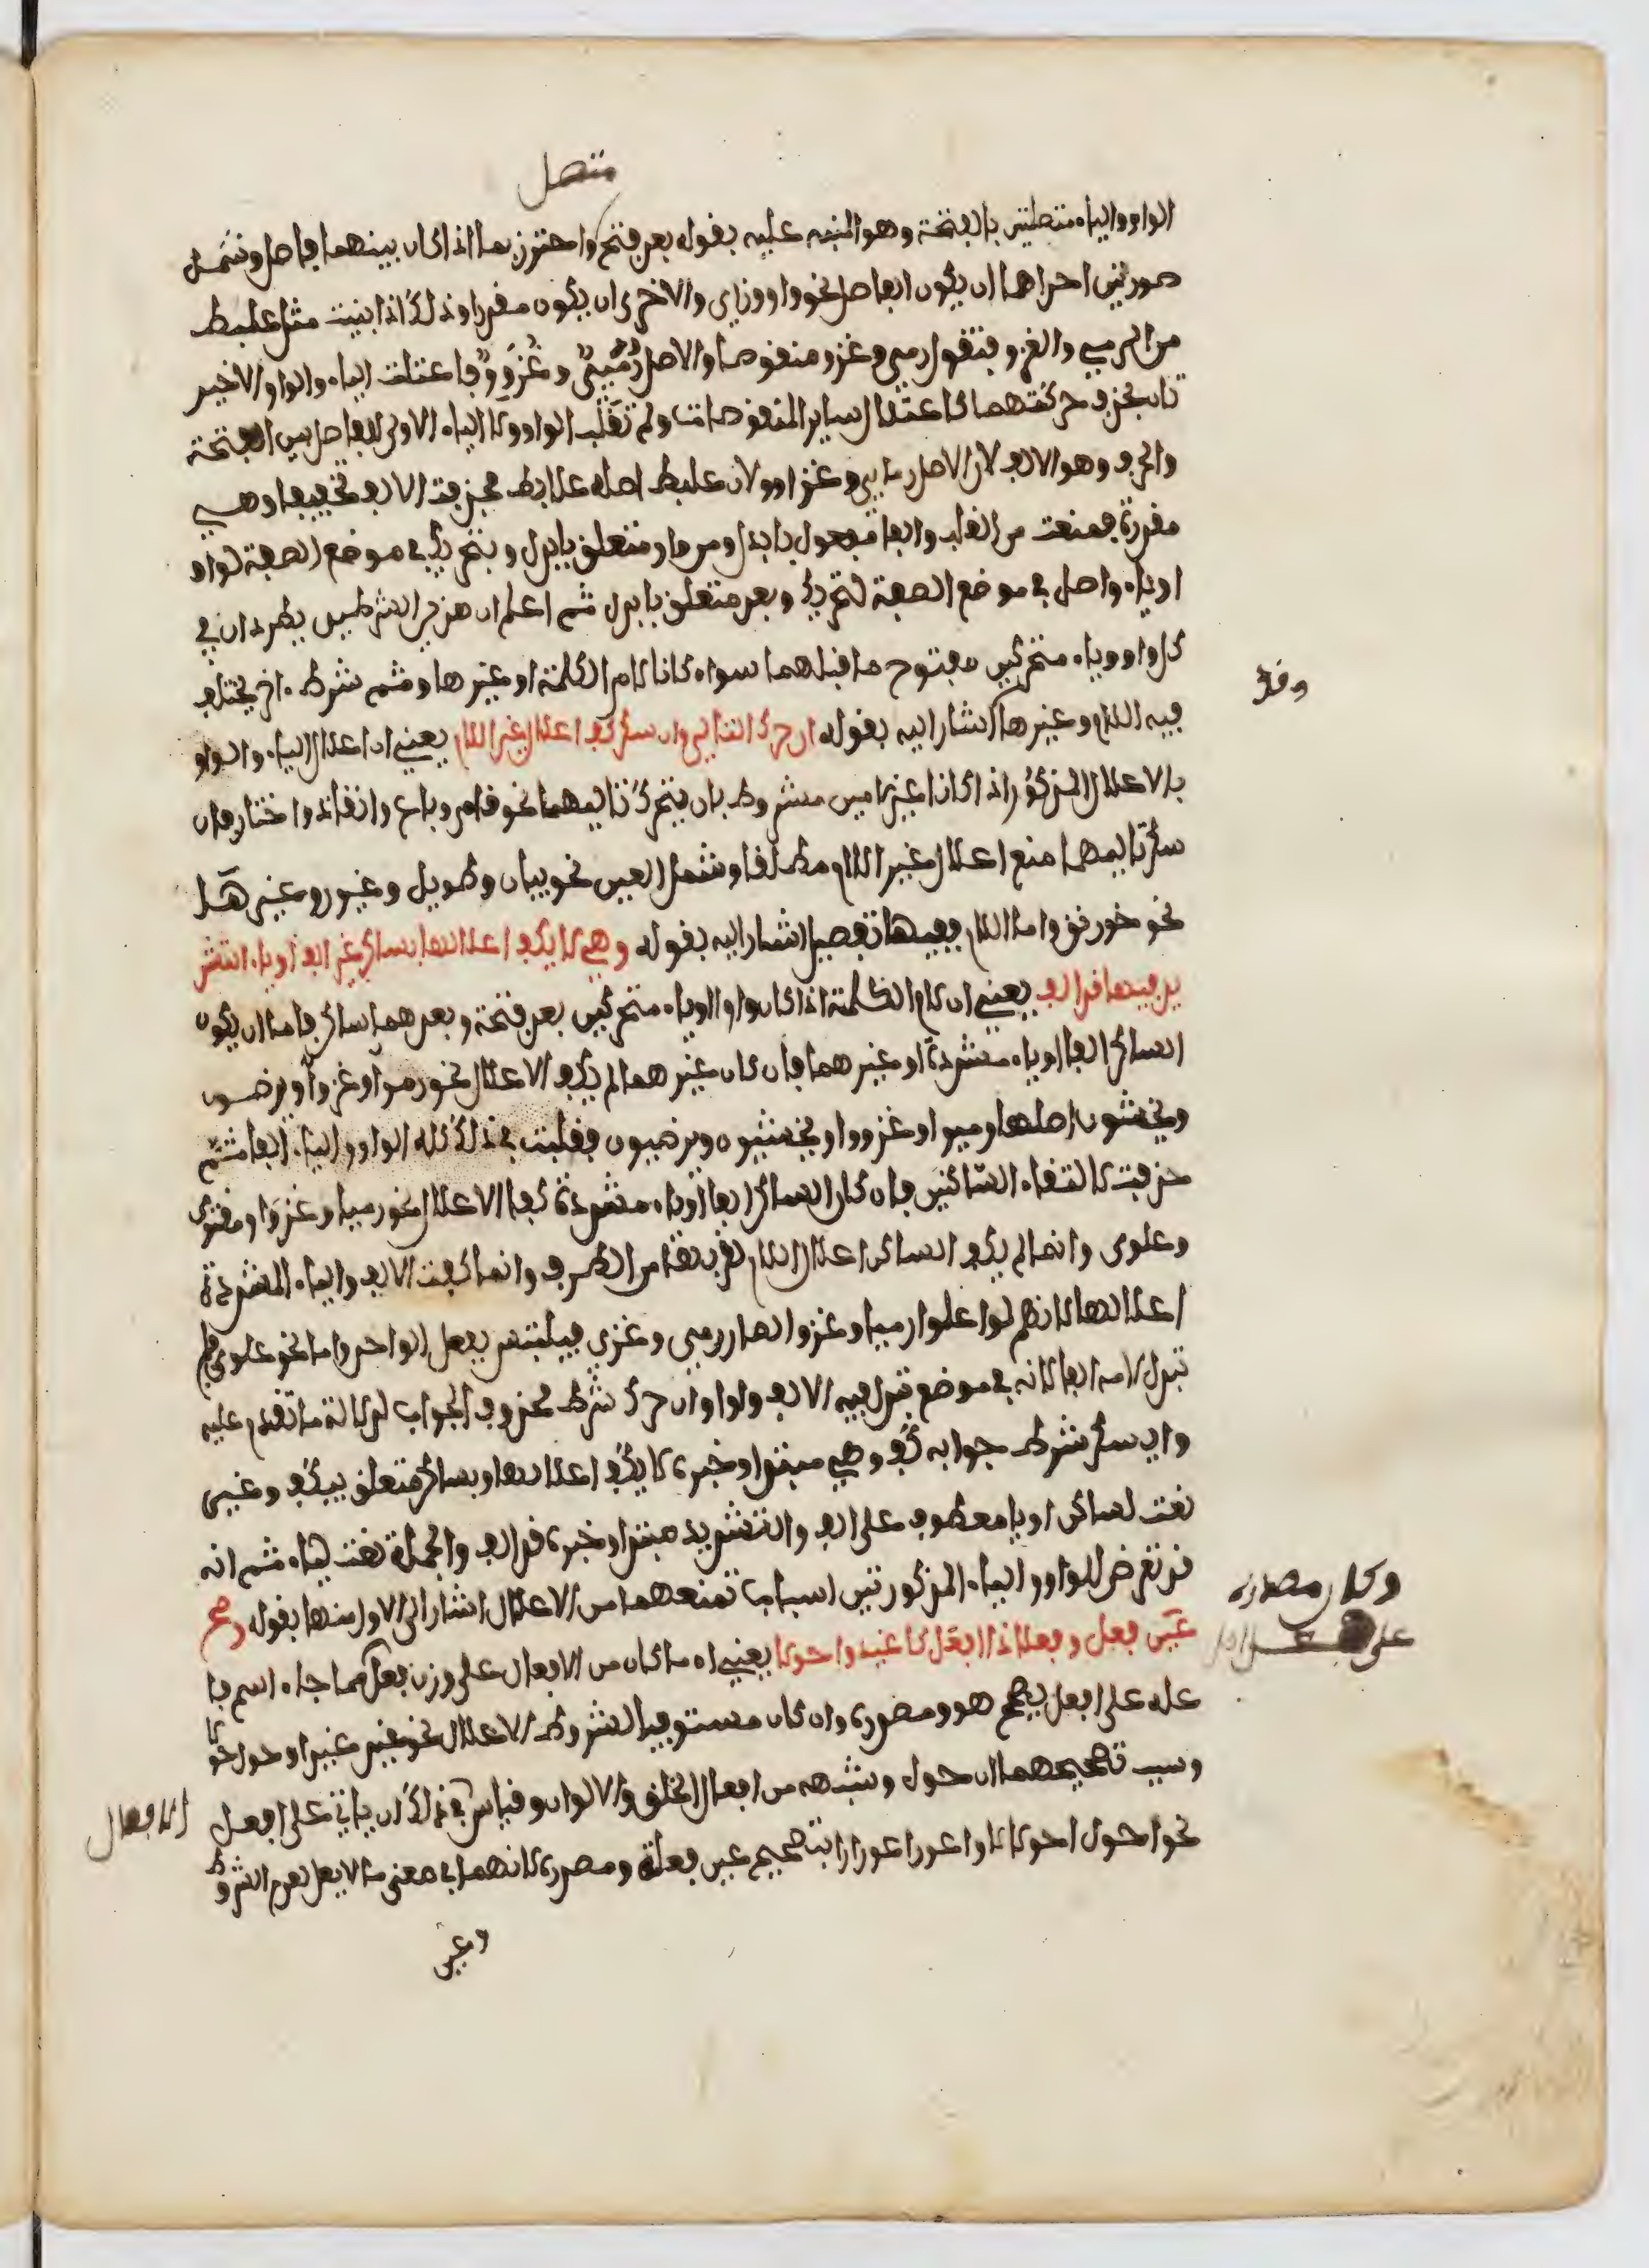 متصل
الواو والياء متصلتين بالفتحة وهو المنبه عليه بقوله بعد فتح واحترز بها اذا كان بينهما فاصل وشمل
صورتين احداهما ان يكون الفاصل نحو واو وزاي والاخرى ان يكون مقدرا وذلك اذا بنيت مثل علبط
من الرمي والغزو فتقول رمي وغزو منقوصا والاصل رُمَيِيٌ و غُزَوِوٌ فاعتلت الياء والواو الاخير
تان بحذف حركتهما كاعتلال ساير المنقوصات ولم تقلب الواو ولا الياء الاولى للفاصل بين الفتحة
والحرف وهو الالف لان الاصل رمايي وغزاوو لان علبط اصله علابط فحذفت الالف تخفيفا وهي
مقدرة فمنعت من القلب والفا مفعول بابدل ومن واو متعلق بابدل وبتحريك في موضع الصفة لواو
او ياء واصل في موضع الصفة لتحريك وبعد متعلق بابدل ثم اعلم ان هذين الشرطين يطردان في
كل واو وياء متحركين مفتوح ما قبلهما سواء كانا لام الكلمة او غيرها وثم شرط ءاخر يختلف
وقد
فيه اللام وغيرها اشار اليه بقوله ان حرك التالي وان سكن كف اعلال غير اللام يعني ان اعلال الياء والواو
بالاعلال المذكور اذا كانا غير لامين مشروط بان يتحرك تاليهما نحو قام وباع وانقاد واختار فان
سكن تاليهما منع اعلال غير اللام مطلقا وشمل العين نحو بيان وطويل وغيور وغيرها
نحو خورنق واما اللام ففيها تفصيل اشار اليه بقوله وهي لا يكف اعلالها بساكن غير الف او ياء التش
ديد فيها قد الف يعني ان لام الكلمة اذا كان واوا او ياء متحركين بعد فتحة وبعدهما ساكن فاما ان يكون
الساكن الفا او ياء مشددة او غيرهما فان كان غيرهما لم يكف الاعلال نحو رموا وغزوا ويرضون
ويخشون اصلها رميوا وغزووا ويخشيون ويرضيون فقلبت في ذلك كله الواو والياء الفا ثم
حذفت لالتقاء الساكنين فان كان الساكن الفا او ياء مشددة كف الاعلال نحو رميا وغزوا ومقتوى
وعلوى وانما لم يكف الساكن اعلال اللام لقربها من الطرف وانما كفت الالف والياء المشددة
اعلالها لانهم لو اعلوا رميا وغزوا لصار رمى وغزى فيلتبس بفعل الواحد واما نحو علوى فلم
تبدل لامه الفا لانه في موضع تبدل فيه الالف واوا وان حرك شرط محذوف الجواب لدلالة ما تقدم عليه
وان سكن شرط جوابه كف وهي مبتدا وخبره لا يكف اعلالها وبساكن متعلق بيكف وغير
نعت لساكن او يا معطوف على الف والتشديد مبتدا وخبره قد الف والجملة نعت لياء ثم انه
قد تعرض للواو والياء المذكورتين اسباب تمنعهما من الاعلال اشار الى الاول منها بقوله وصح
وكان مصدره
على
عين فعل وفعلا ذا افعل كاغيد واحولا يعني ان ما كان من الافعال على وزن فعل مما جاء اسم فا
عله على افعل يصح هو ومصدره وان كان مستوفيا لشروط الاعلال نحو غيد غيدا وحول حولا
وسبب تصحيحهما ان حول وشبهه من افعال الخلق والالوان وقياس في ذلك ان ياتي على افعل
الافعال
نحو احول احولالا واعور اعورارا بتصحيح عين فعله ومصدره لانهما في معنى ما لا يعل لعدم الشروط
وعين